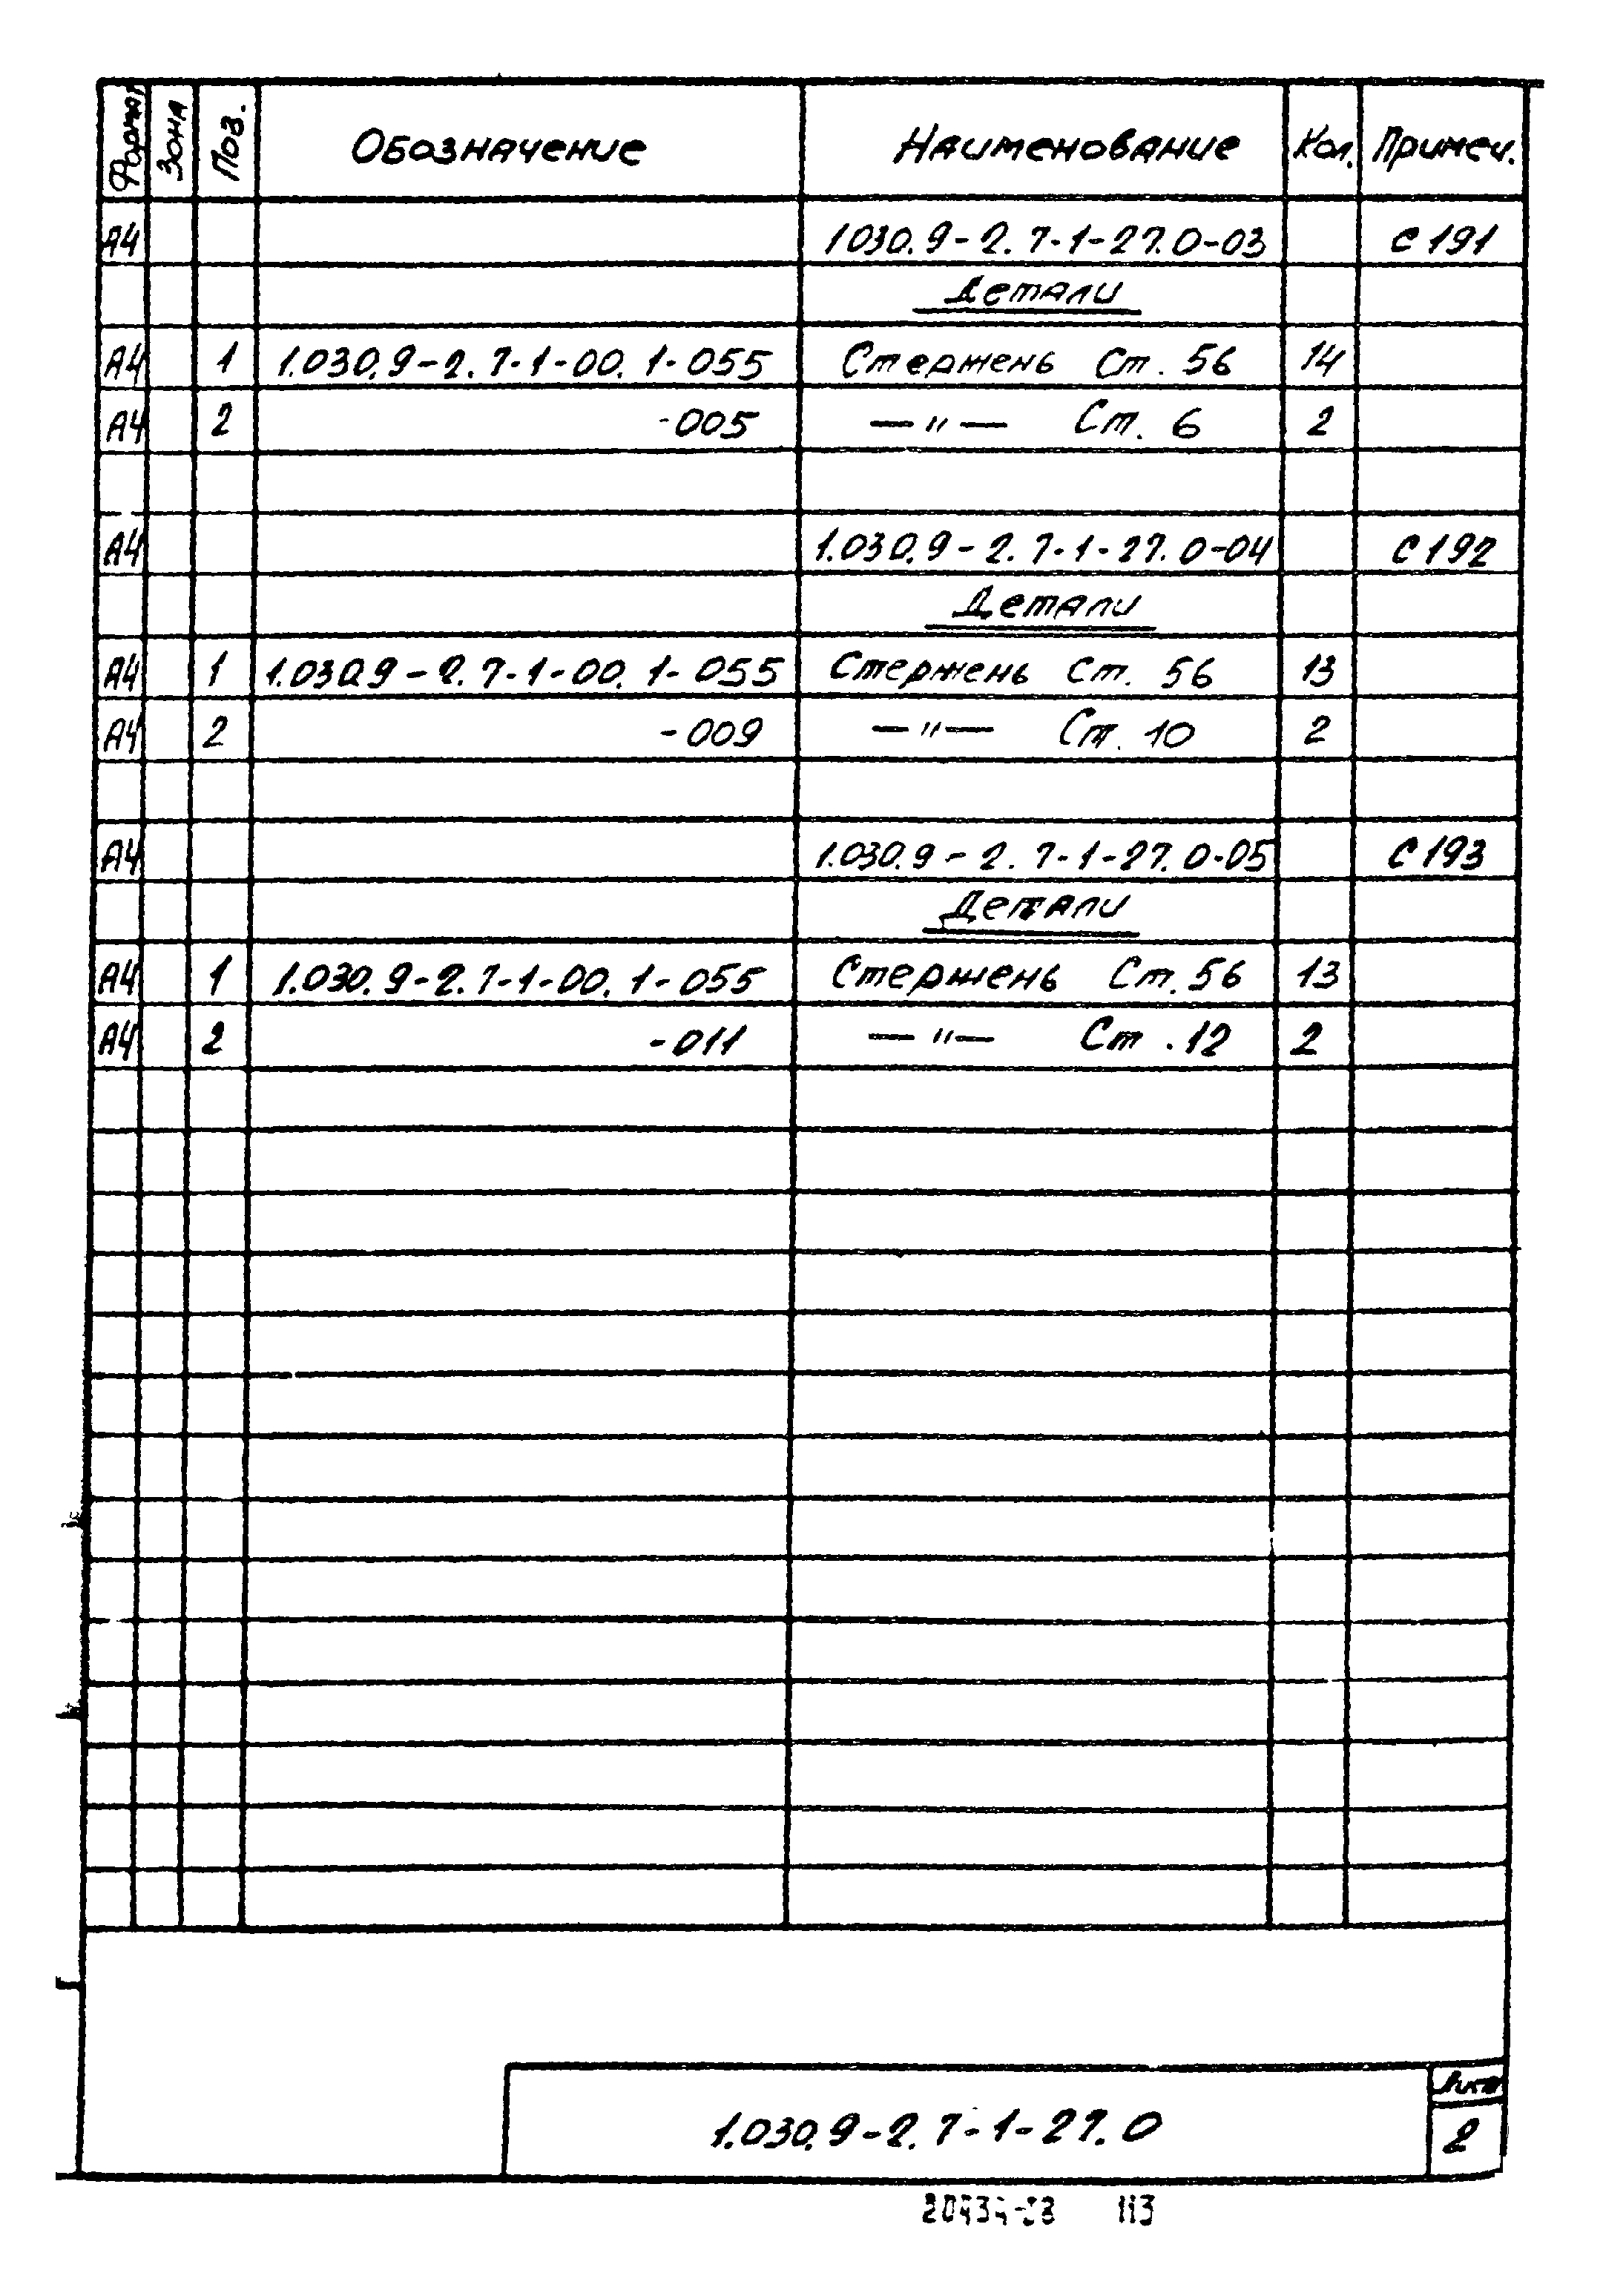 Формат Зона Поз. Обозначение Наименование Кол. Примеч.
А4 1030.9-2.7-1-27.0-03 С 191
Детали
А4 1 1.030.9-2.7-1-00.1-055 Стержень Ст. 56 14
А4 2 -005 — " — Ст. 6 2
А4 1.030.9-2.7-1-27.0-04 С 192
Детали
А4 1 1.030.9-2.7-1-00.1-055 Стержень Ст. 56 13
А4 2 -009 — " — Ст. 10 2
А4 1.030.9-2.7-1-27.0-05 С 193
Детали
А4 1 1.030.9-2.7-1-00.1-055 Стержень Ст. 56 13
А4 2 -011 — " — Ст. 12 2
Лист
1.030.9-2.7-1-27.0 2
113